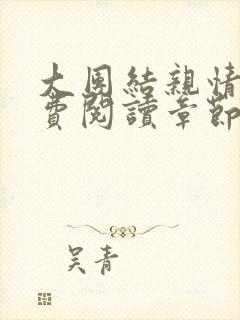 大團結親情
費閱讀章節
吴青